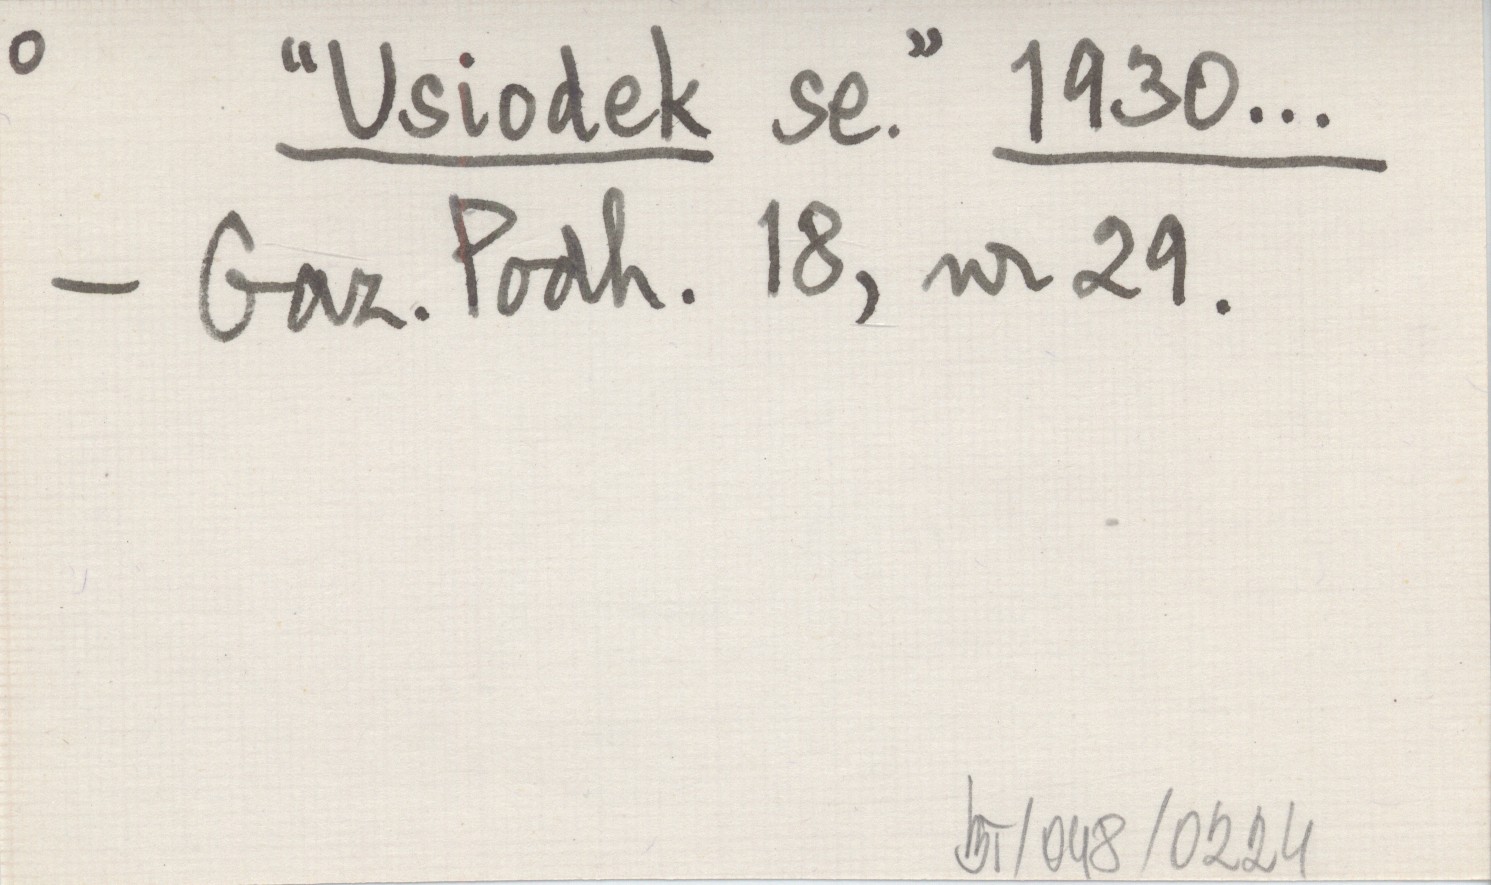 o "Usiodek se." 1930...
— Gaz. Podh. 18, nr 29.
/048/0224